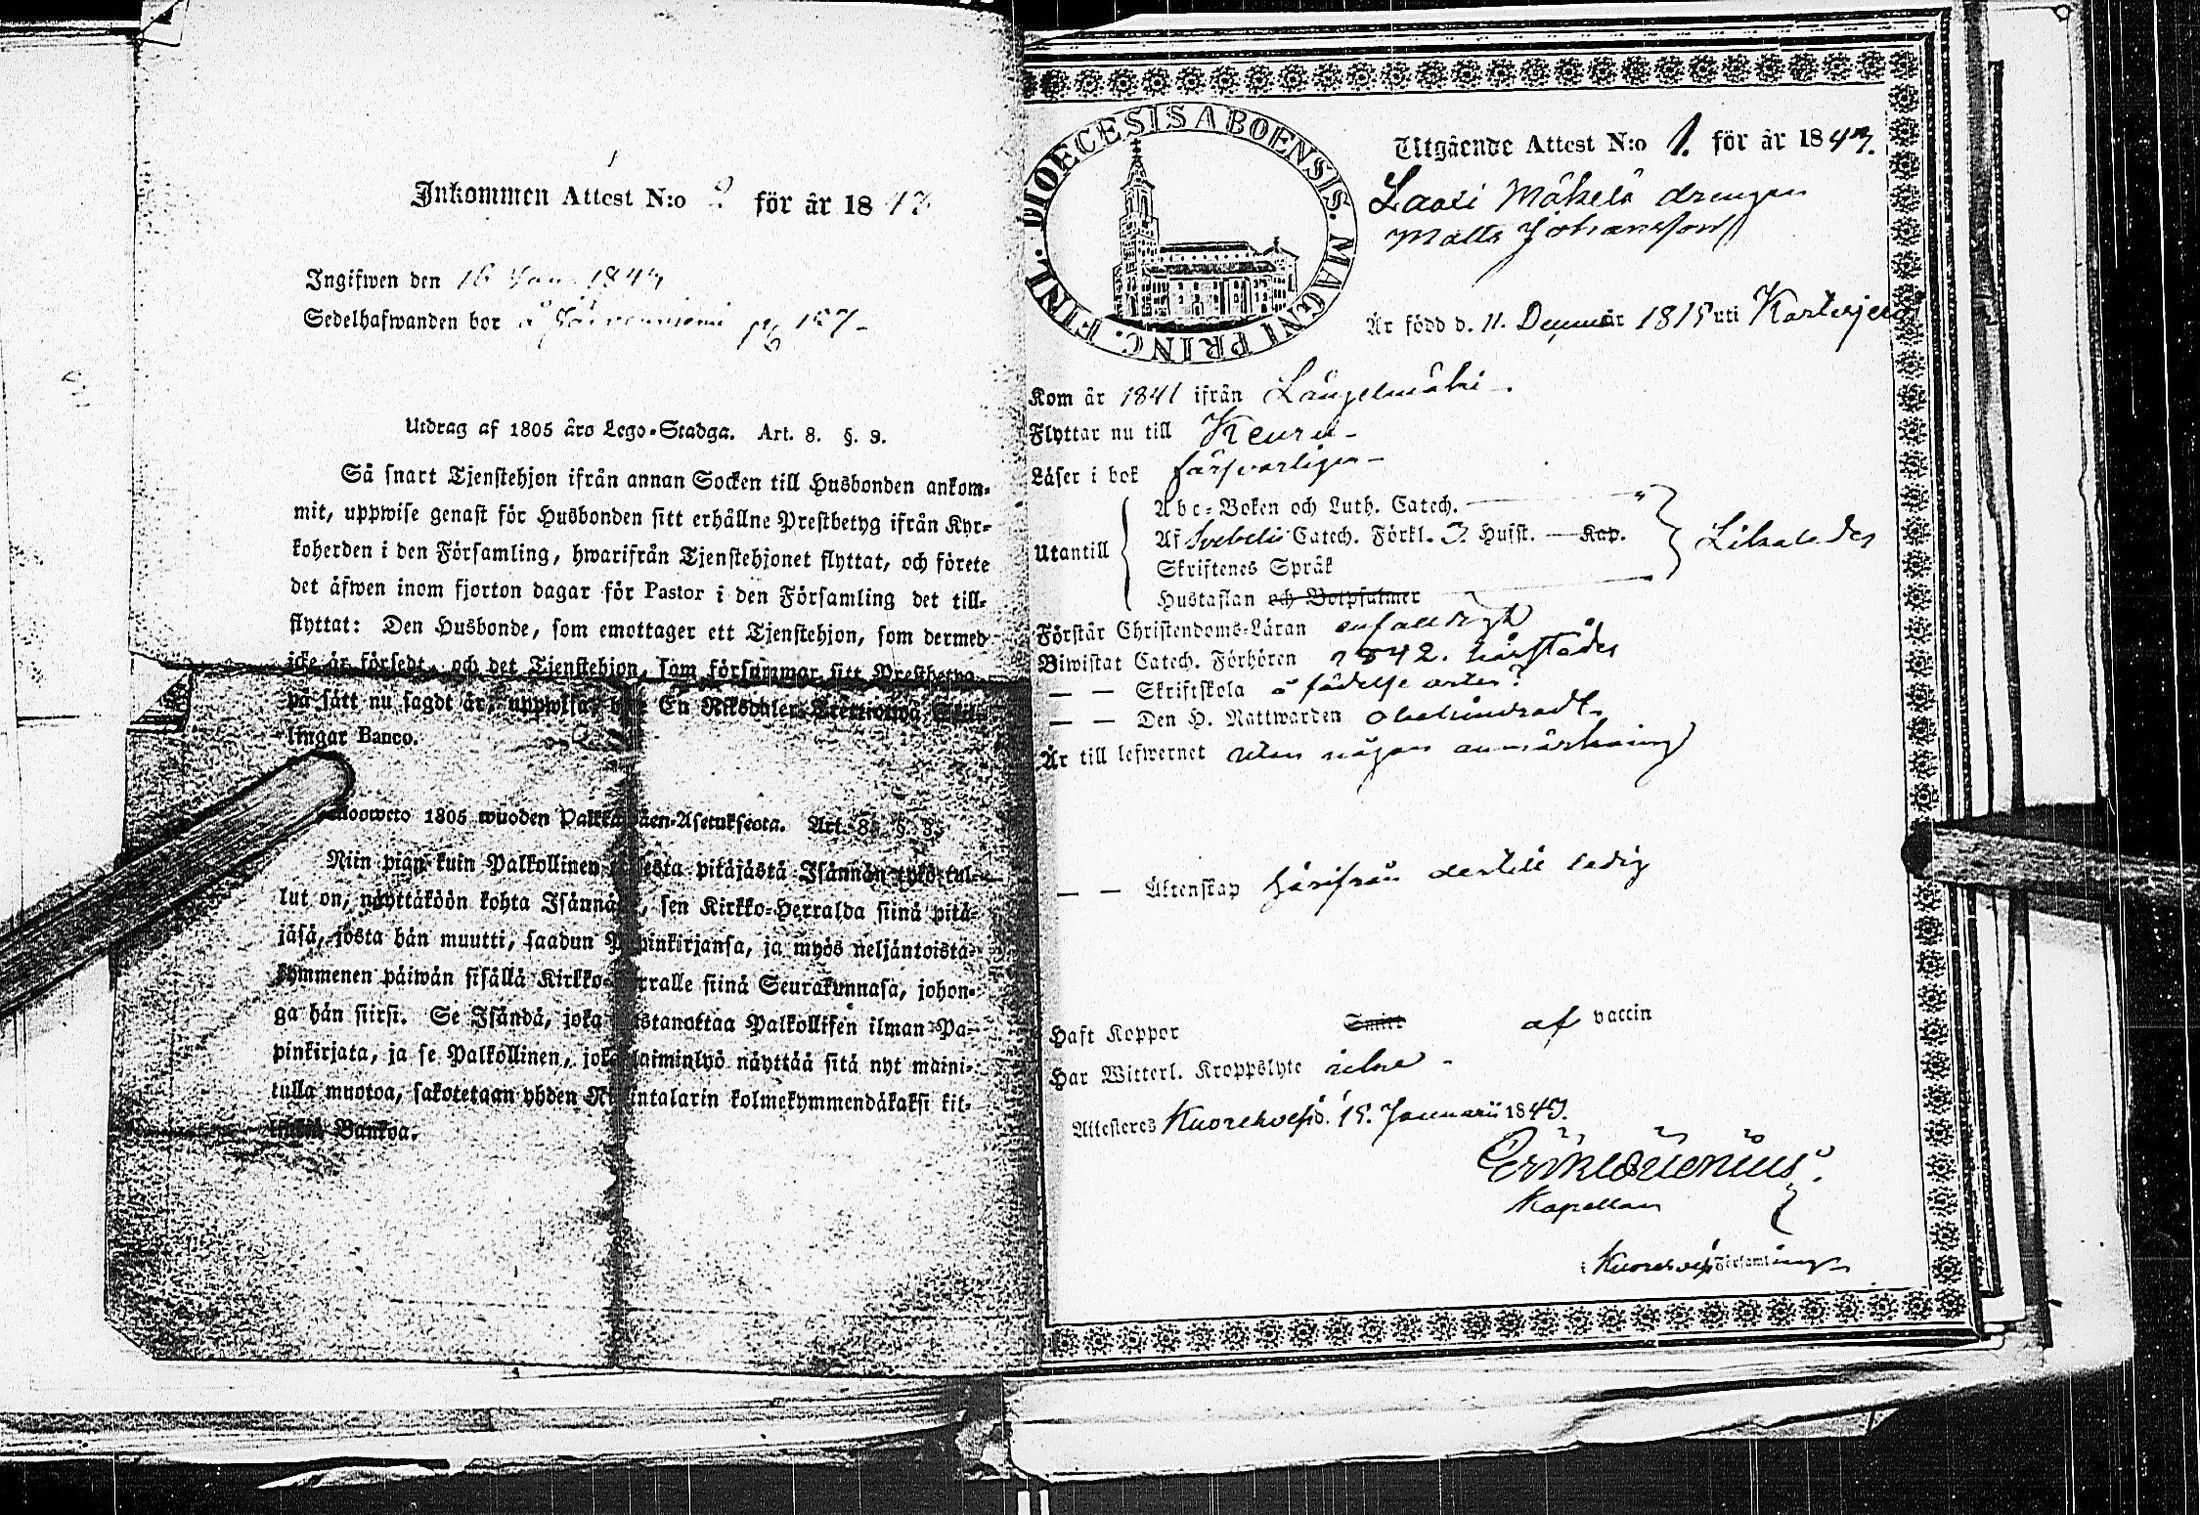 Inkommen Attest N:o 2 för år 18
Ingifwen den 16 Jan. 184
Sedelhafwanden bor å pag 157
Utdrag af 1805 års Lego-Stadga. Art. 8. §. 9.
Så snart Tjenstehjon ifrån annan Socken till Husbonden ankom-
mit, uppwise genast för Husbonden sitt erhållne Prestbetyg ifrån Kyr-
koherden i den Församling, hwarifrån Tjenstehjonet flyttat, och förete
det äfwen inom fjorton dagar för Pastor i den Församling det till-
flyttat: Den Husbonde, som emottager ett Tjenstehjon, som dermed
icke är försedt, och det Tjenstehjon, som försummar sitt Prestbetyg
på sätt nu sagdt är, uppwisa, En Riksdaler Trettiotwå Skil-
lingar Banco.
1805 wuoden Palkka Asetuksesta. Art. 8. §.
Niin pian kuin Palkollinen pitäjästä Isännän tykö tul-
lut on, näyttäköön kohta Isännä, sen Kirkko-Herralda siinä pitä-
jäsä, josta hän muutti, saadun Papinkirjansa, ja myös neljäntoista-
kymmenen päiwän sisällä Kirkko-Herralle siinä Seurakunnasa, johon-
ga hän siirsi. Se Isändä, joka wastanottaa Palkollisen ilman Pa-
pinkirjata, ja se Palkollinen, joka laiminlyö näyttää sitä nyt maini-
tulla muotoa, sakotetaan yhden Riksintalarin kolmekymmendäkaksi kil-
Bankoa.
FINL. DIOECESIS ABOENSIS. MAGNI PRINC.
Utgående Attest N:o 1. för år 1843.
Laasi Mäkelä drengen
Matts Johansson
Är född d. 11. December 1815 uti
Kom år 1841 ifrån Längelmäki.
Flyttar nu till Keuru
Läser i bok försvarligen
Abc-Boken och Luth. Catech.
Utantill
Af Svebelii Catech. Förkl. 3 Hufst. Kap.
Likaledes
Skriftenes Språk
Hustaflan och Botpsalmer
Förstår Christendoms-Läran enfaldigt
Biwistat Catech. Förhören 1842. härstädes
— — Skriftskola å födelse orten
— — Den H. Nattwarden obehindradt
Är till lefwernet utan någon anmärkning
— — Äktenskap härifrån dertill ledig
Haft Koppor Smitt af vaccin
Har Witterl. Kroppslyte icke
Attesteres Kuorehvesi d. 15. Januarii 1843.
Erik
Kapellan
i Kuorevesi Församling